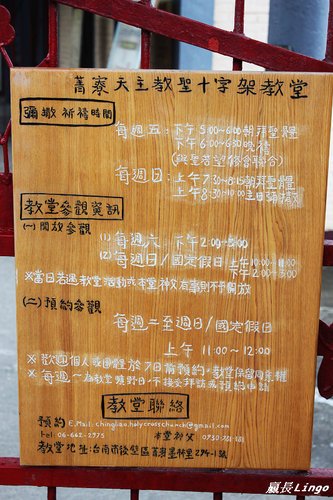 菁寮天主教聖十字架教堂
彌撒祈禱時間
每週五：下午5:00~6:00朝拜聖體
下午6:00~6:30晚禱
(與聖若望修會聯合)
每週日：上午7:30~8:15朝拜聖體
上午8:30~10:00主日彌撒
教堂參觀資訊
(一)開放參觀
(1)每週六 下午2:00~5:00
(2)每週日/國定假日 上午10:00~11:00
下午2:00~5:00
※當日若遇教堂活動或本堂神父有事則不開放
(二)預約參觀
每週二至週日/國定假日
上午 11:00~12:00
※歡迎個人或團體於7日前預約，教堂保留同意權
※每週一為教堂 日，不接受拜訪或預約申請
教堂聯絡
預約E.Mail: chingliao.holycrosschurch@gmail.com
Tel: 06-662-2975 本堂神父 0730-781-781
教堂地址：台南市後壁區菁寮墨林里294-1號
嬴長Lingo